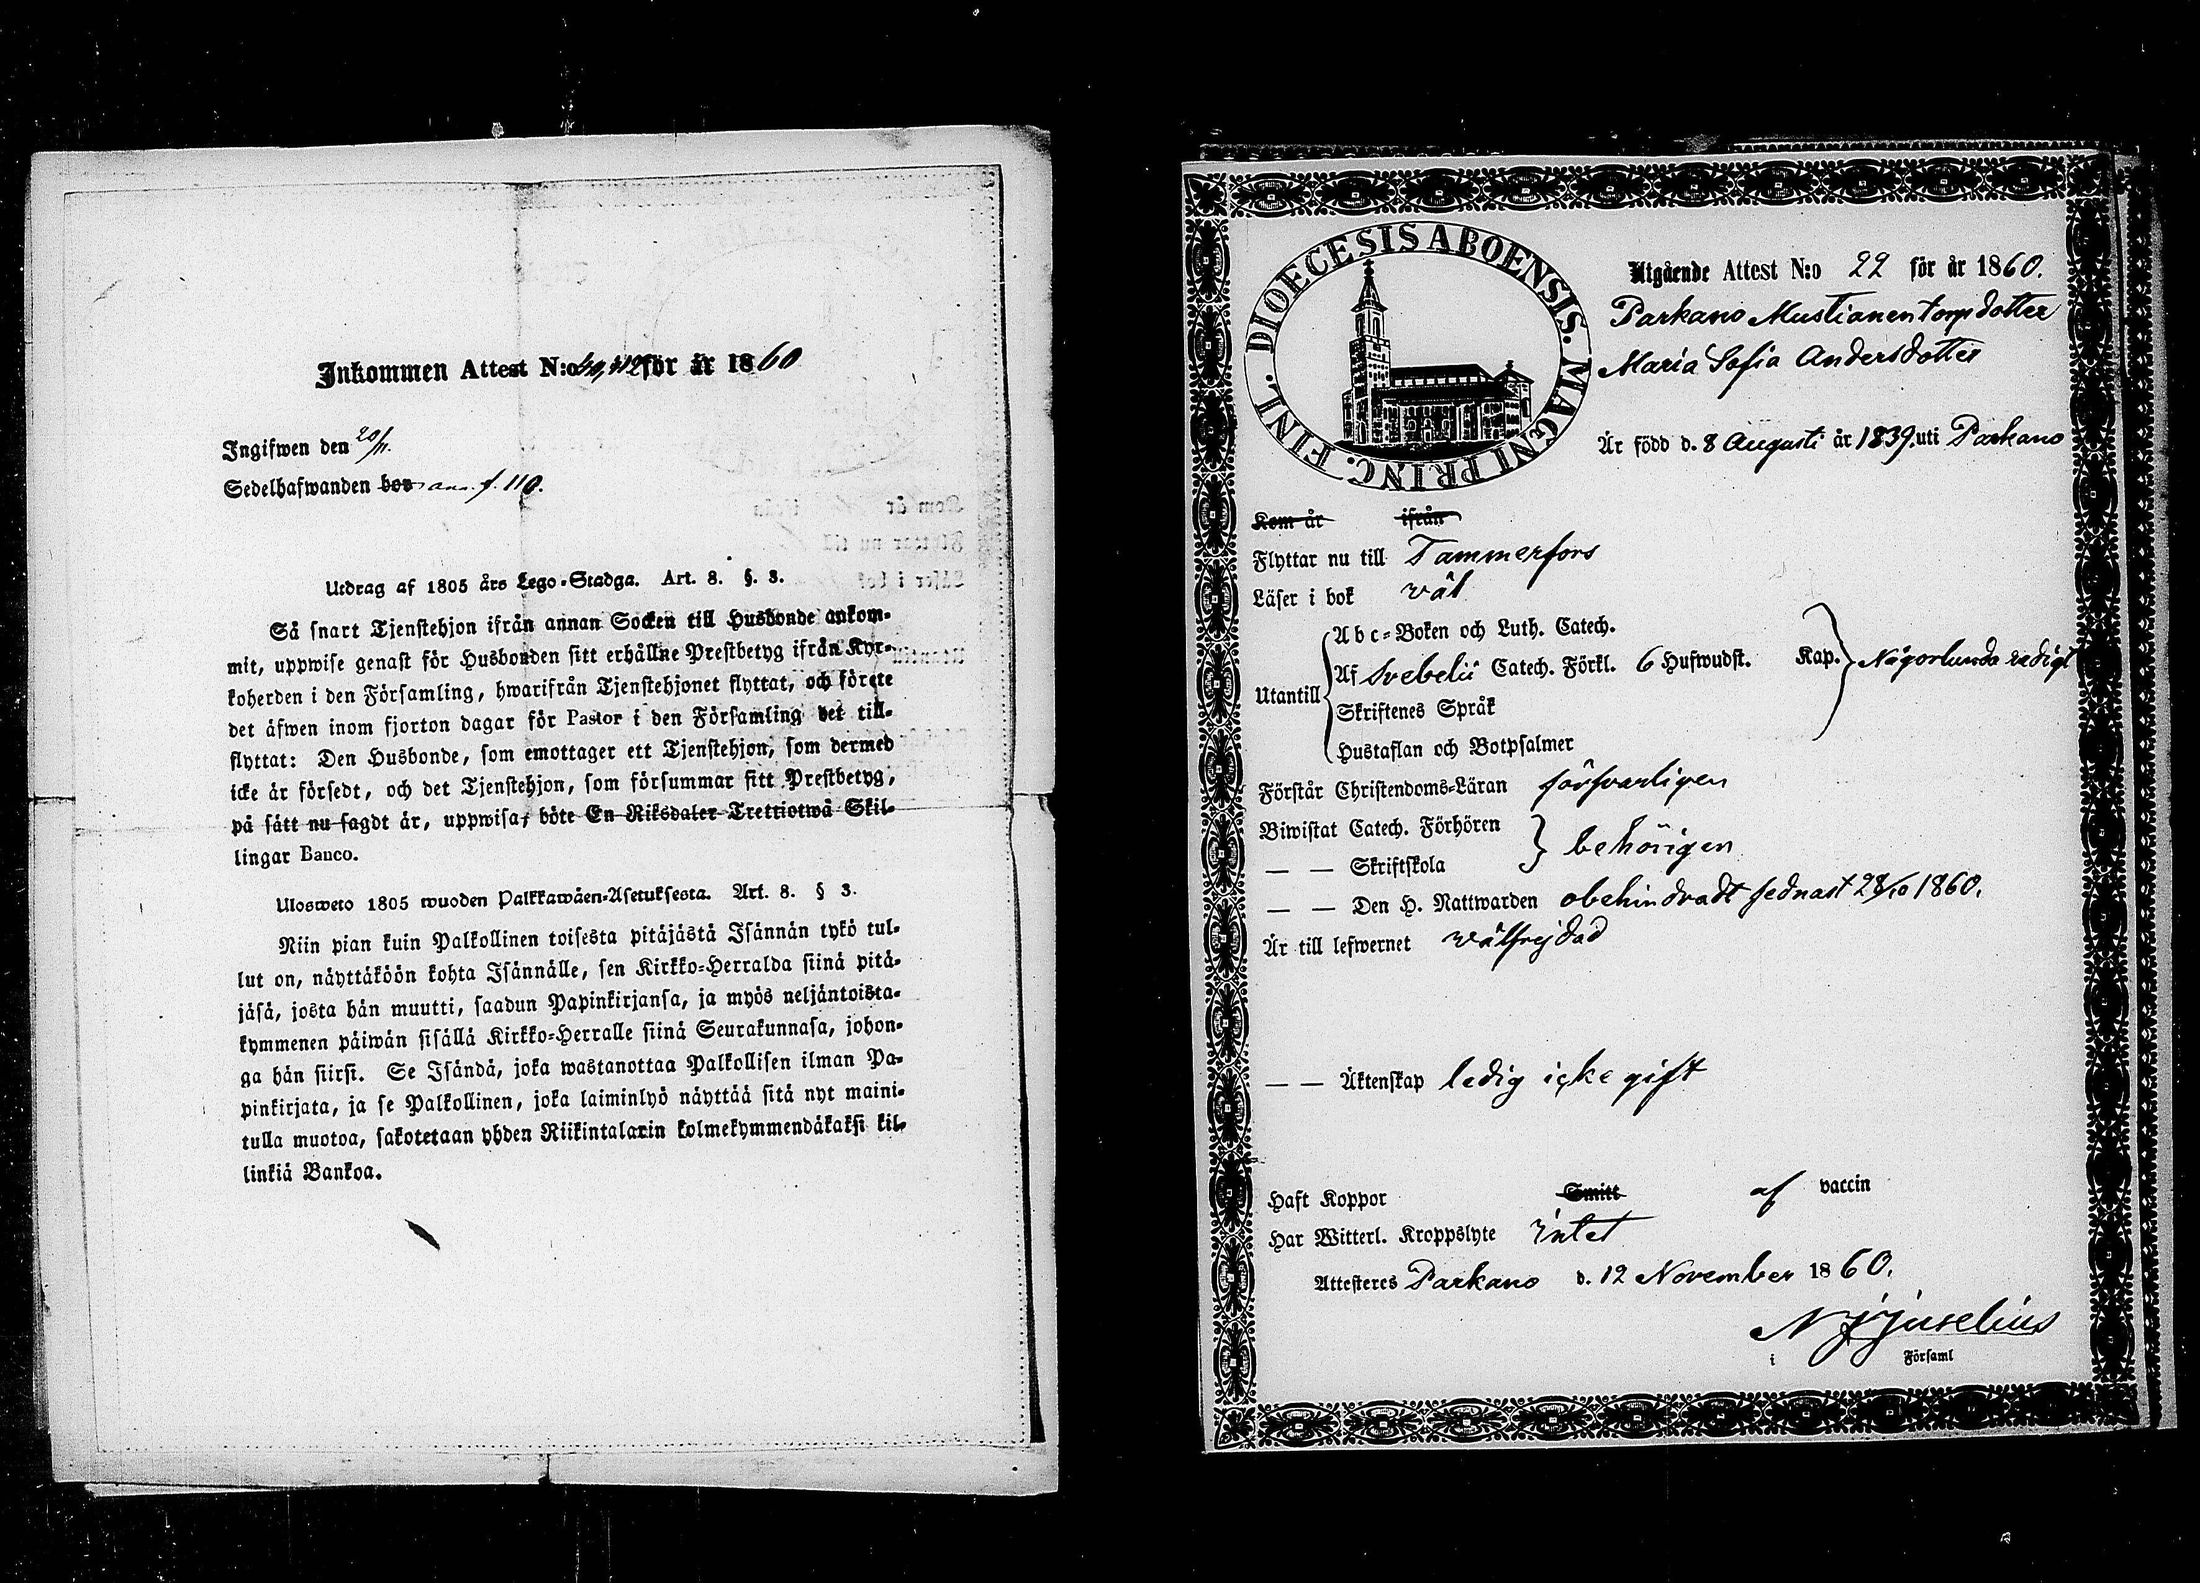 Inkommen Attest N:o för år 1860
Ingifwen den 20/11.
Sedelhafwanden bor ann. f. 110.
Utdrag af 1805 års Lego-Stadga. Art. 8. §. 3.
Så snart Tjenstehjon ifrån annan Socken till Husbonde ankom-
mit, uppwise genast för Husbonden sitt erhållne Prestbetyg ifrån Kyr-
koherden i den Församling, hwarifrån Tjenstehjonet flyttat, och förete
det äfwen inom fjorton dagar för Pastor i den Församling det till-
flyttat: Den Husbonde, som emottager ett Tjenstehjon, som dermed
icke är försedt, och det Tjenstehjon, som försummar sitt Prestbetyg,
på sätt nu sagdt är, uppwisa, böte En Riksdaler Trettiotwå Skil-
lingar Banco.
Ulosweto 1805 wuoden Palkkawäen-Asetuksesta. Art. 8. § 3.
Niin pian kuin Palkollinen toisesta pitäjästä Isännän tykö tul-
lut on, näyttäköön kohta Isännälle, sen Kirkko-Herralda siinä pitä-
jäsä, josta hän muutti, saadun Papinkirjansa, ja myös neljäntoista-
kymmenen päiwän sisällä Kirkko-Herralle siinä Seurakunnasa, johon-
ga hän siirsi. Se Isändä, joka wastanottaa Palkollisen ilman Pa-
pinkirjata, ja se Palkollinen, joka laiminlyö näyttää sitä nyt maini-
tulla muotoa, sakotetaan yhden Riikintalarin kolmekymmendäkaksi kil-
linkiä Bankoa.
DIOECESIS ABOENSIS. MAGNI PRINC. FINL.
Utgående Attest N:o 22 för år 1860.
Parkano Mustianen torp dotter
Maria Sofia Andersdotter
Är född d. 8 Augusti år 1839. uti Parkano
Kom år ifrån
Flyttar nu till Tammerfors
Läser i bok wäl
Utantill
Abc-Boken och Luth. Catech.
Af Svebelii Catech. Förkl. 6 Hufwudst. Kap. Någorlunda redigt
Skriftenes Språk
Hustaflan och Botpsalmer
Förstår Christendoms-Läran försvarligen
Biwistat Catech. Förhören
— — Skriftskola
behörigen
— — Den H. Nattwarden obehindradt sednast 28/10 1860.
Är till lefwernet wälfrejdad
— — Äktenskap ledig icke gift
Haft Koppor Smitt af vaccin
Har Witterl. Kroppslyte intet
Attesteres Parkano d. 12 November 1860.
Juselius
i Församl